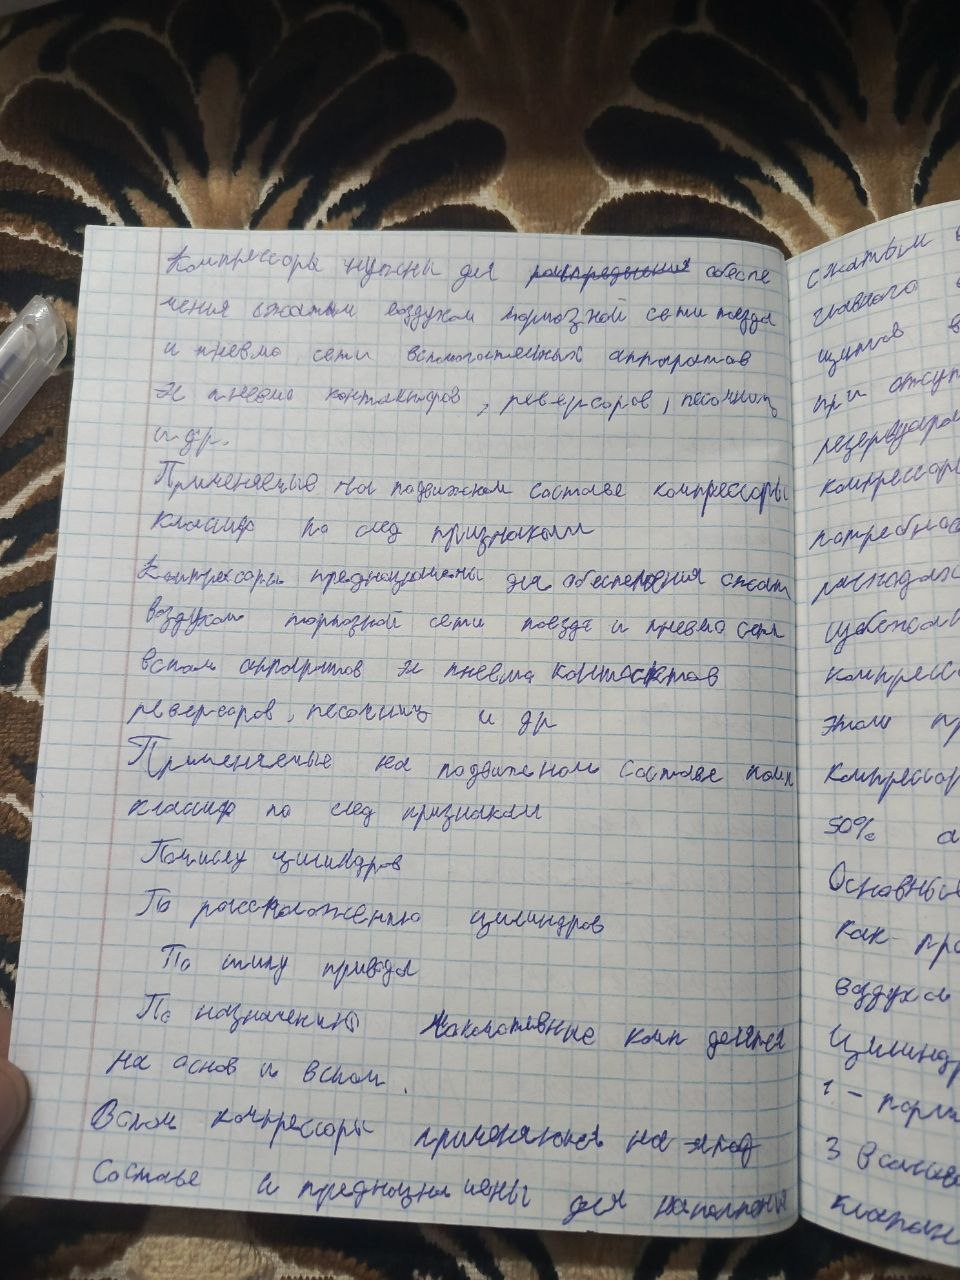 Компрессоры нужны для распределения обеспе
чения сжатым воздухом тормозной сети поезда
и пневмо сети вспомогательных аппаратов
Эл пневмо контакторов, реверсоров, песочниц
и др.
Применяемые на подвижном составе компрессоры
классиф по след признакам
Компрессоры предназначены для обеспечения сжат
воздухом тормозной сети поезда и пневмо сети
вспом аппаратов эл пневмо контактов
реверсоров, песочниц и др
Применяемые на подвижном составе комп
классиф по след признакам
По числу цилиндров
По расположению цилиндров
По типу привода
По назначению локомотивные комп делятся
на основ и вспом.
Вспом компрессоры применяются на
составе и предназначены для наполнения
сжатым
главного
щитов в
при отсут
резервуарах
компрессоры
потребнос
расхода
избежан
компресс
этом пр
компрессор
50%
Основны
как пр
воздуха
Цилиндр
1 - порш
3 всасыва
клапан